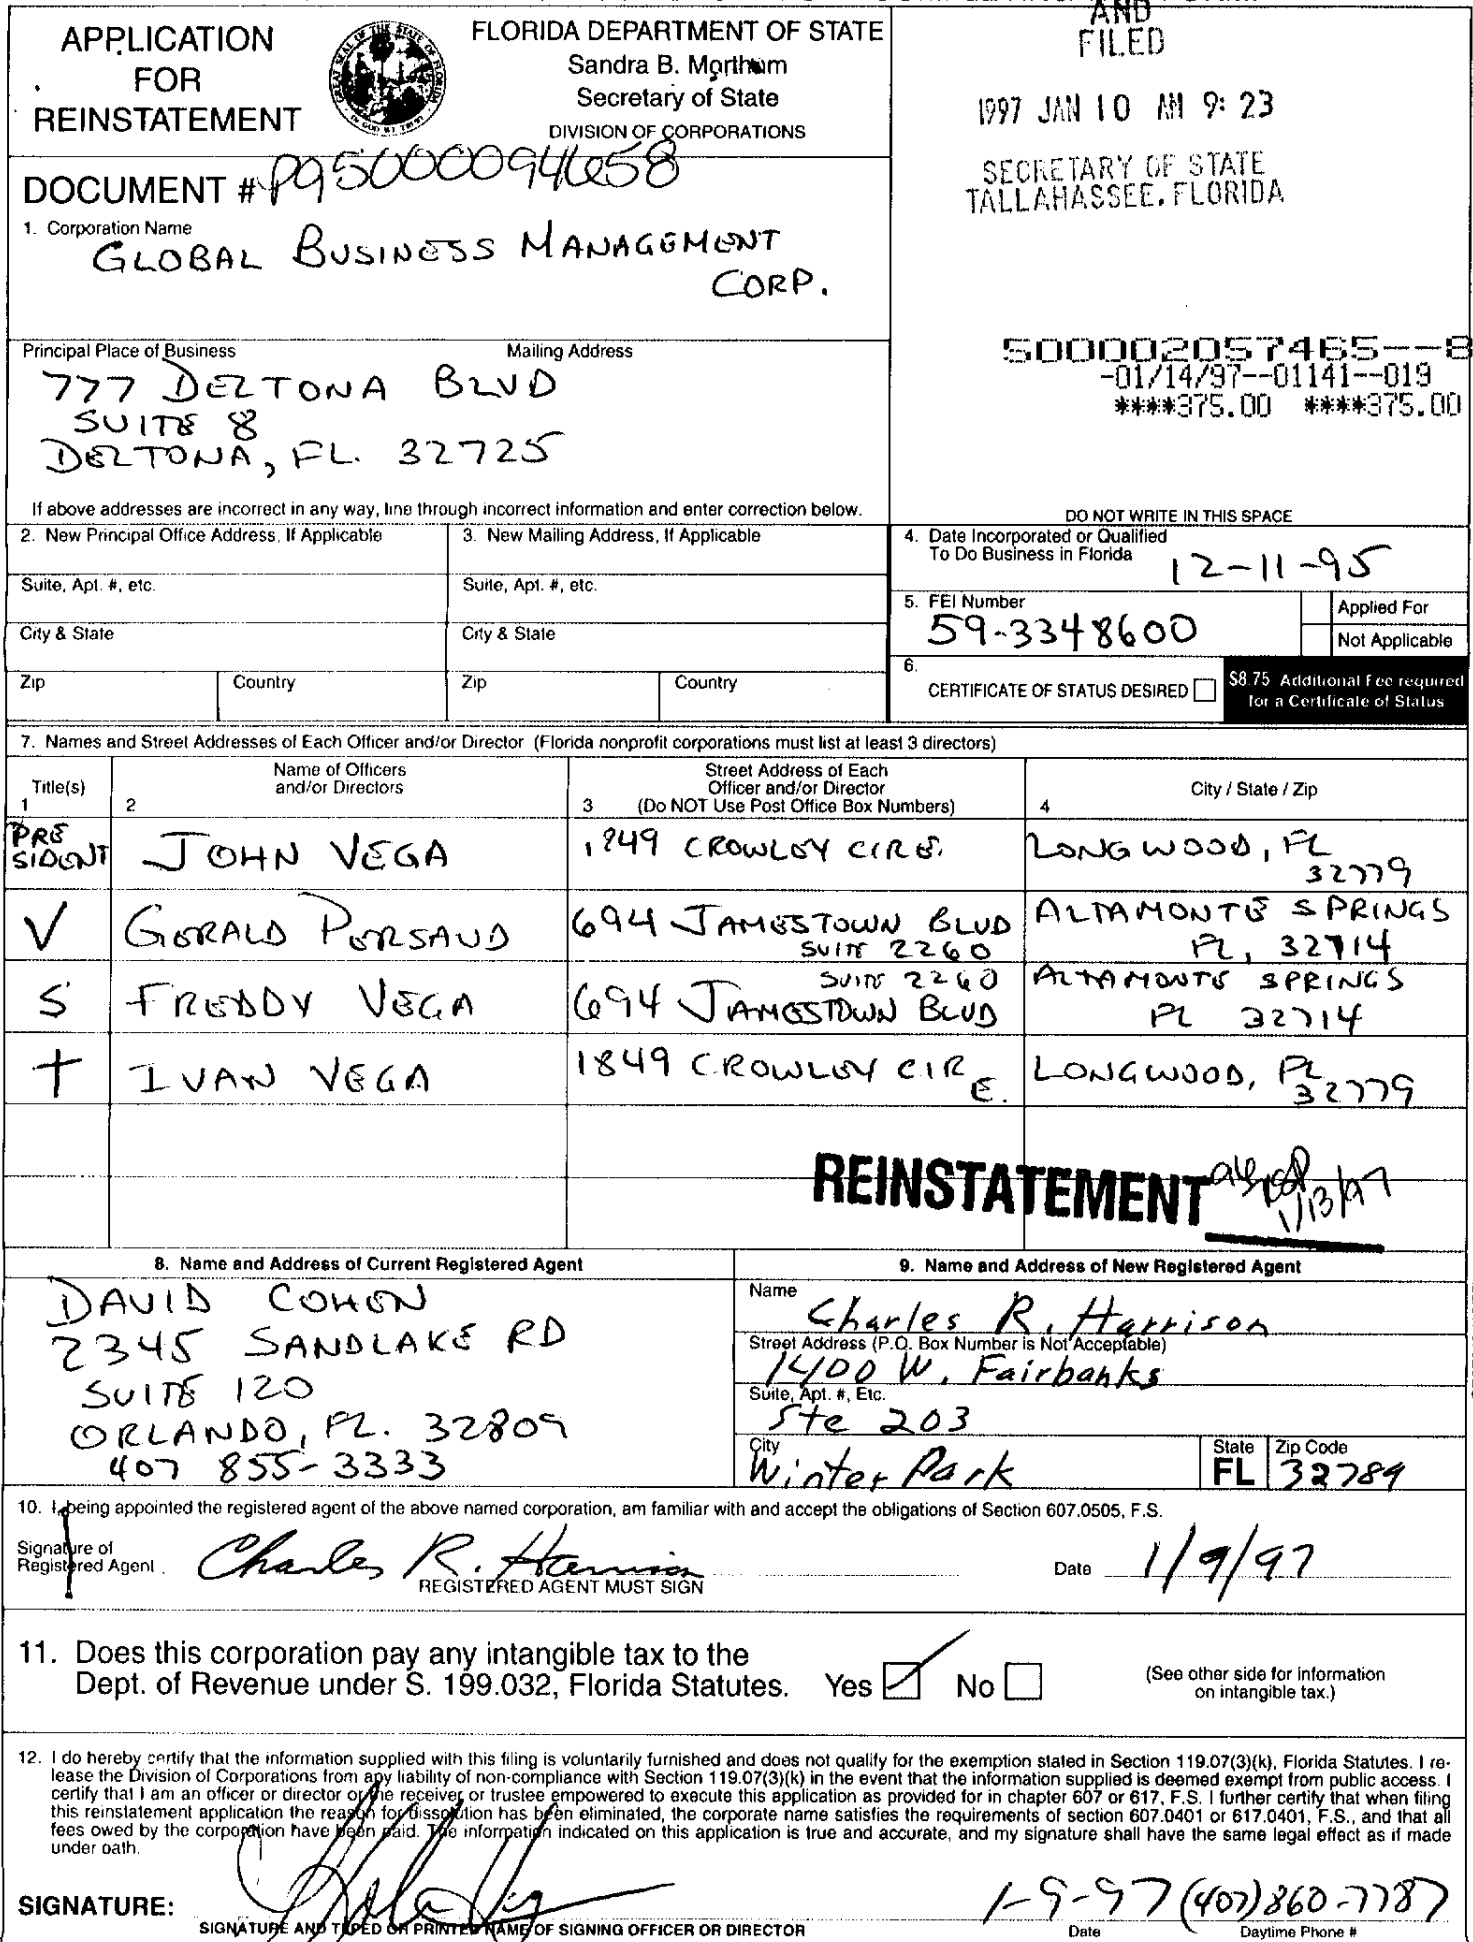 APPLICATION
FOR
REINSTATEMENT
FLORIDA DEPARTMENT OF STATE
Sandra B. Mortham
Secretary of State
DIVISION OF CORPORATIONS
AND
FILED
1997 JAN 10 AM 9: 23
SECRETARY OF STATE
TALLAHASSEE, FLORIDA
DOCUMENT # P95000094658
1. Corporation Name
GLOBAL BUSINESS MANAGEMENT
CORP.
Principal Place of Business Mailing Address
777 DELTONA BLVD
SUITE 8
DELTONA, FL. 32725
500002057465--8
-01/14/97--01141--019
****375.00 ****375.00
If above addresses are incorrect in any way, line through incorrect information and enter correction below.
DO NOT WRITE IN THIS SPACE
2. New Principal Office Address, If Applicable
3. New Mailing Address, If Applicable
4. Date Incorporated or Qualified
To Do Business in Florida 12-11-95
Suite, Apt. #, etc.
Suite, Apt. #, etc.
5. FEI Number
59-3348600
Applied For
Not Applicable
City & State
City & State
6.
CERTIFICATE OF STATUS DESIRED
$8.75 Additional Fee required
for a Certificate of Status
Zip Country Zip Country
7. Names and Street Addresses of Each Officer and/or Director (Florida nonprofit corporations must list at least 3 directors)
Title(s)
1
Name of Officers
and/or Directors
2
Street Address of Each
Officer and/or Director
3 (Do NOT Use Post Office Box Numbers)
City / State / Zip
4
PRE
SIDENT
JOHN VEGA
1849 CROWLEY CIR E.
LONGWOOD, FL
32779
V
GERALD PERSAUD
694 JAMESTOWN BLVD
SUITE 2260
ALTAMONTE SPRINGS
FL, 32714
S
FREDDY VEGA
SUITE 2260
694 JAMESTOWN BLVD
ALTAMONTE SPRINGS
FL 32714
T
IVAN VEGA
1849 CROWLEY CIR
E.
LONGWOOD, FL
32779
REINSTATEMENT
1/13/97
8. Name and Address of Current Registered Agent
DAVID COHEN
2345 SANDLAKE RD
SUITE 120
ORLANDO, FL. 32809
407 855-3333
9. Name and Address of New Registered Agent
Name
Charles R. Harrison
Street Address (P.O. Box Number is Not Acceptable)
1400 W. Fairbanks
Suite, Apt. #, Etc.
Ste 203
City State Zip Code
Winter Park FL 32789
10. I, being appointed the registered agent of the above named corporation, am familiar with and accept the obligations of Section 607.0505, F.S.
Signature of
Registered Agent Charles R. Harrison Date 1/9/97
REGISTERED AGENT MUST SIGN
11. Does this corporation pay any intangible tax to the
Dept. of Revenue under S. 199.032, Florida Statutes. Yes No
(See other side for information
on intangible tax.)
12. I do hereby certify that the information supplied with this filing is voluntarily furnished and does not qualify for the exemption stated in Section 119.07(3)(k), Florida Statutes. I re-
lease the Division of Corporations from any liability of non-compliance with Section 119.07(3)(k) in the event that the information supplied is deemed exempt from public access. I
certify that I am an officer or director or the receiver or trustee empowered to execute this application as provided for in chapter 607 or 617, F.S. I further certify that when filing
this reinstatement application the reason for dissolution has been eliminated, the corporate name satisfies the requirements of section 607.0401 or 617.0401, F.S., and that all
fees owed by the corporation have been paid. The information indicated on this application is true and accurate, and my signature shall have the same legal effect as if made
under oath.
SIGNATURE:
1-9-97 (407) 860-7787
SIGNATURE AND TYPED OR PRINTED NAME OF SIGNING OFFICER OR DIRECTOR Date Daytime Phone #